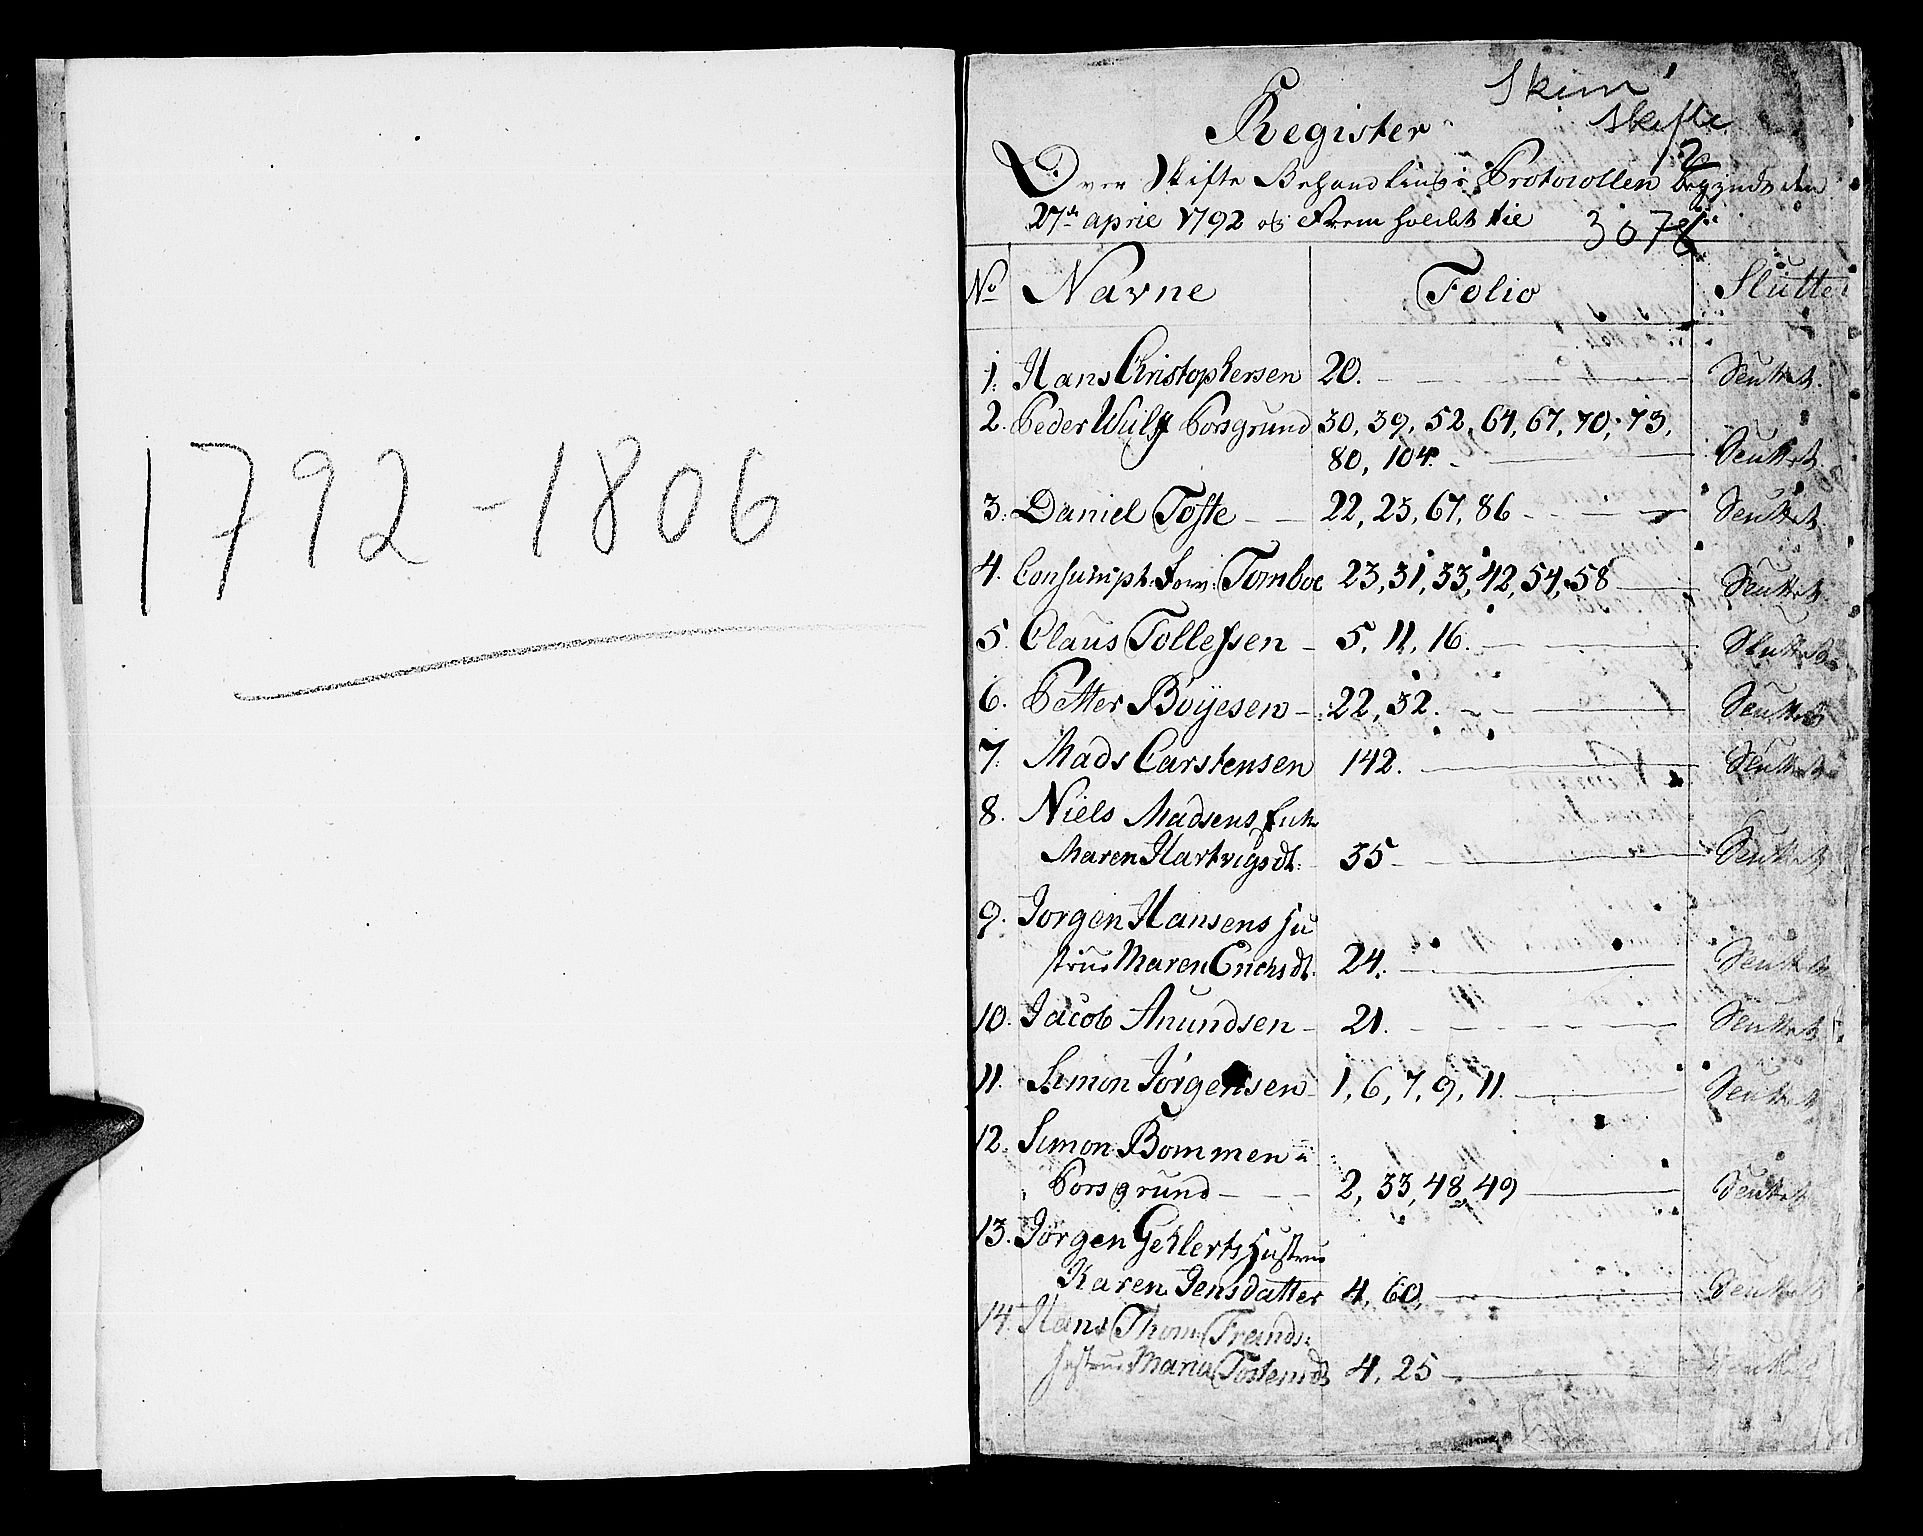 1792 - 1806
Skien
Skifte
2
Register
Over Skifte Behandling i Protocollen begyndt den
27de april 1792 og Frem holdet til
3078
No Navne Folio Sluttet
1. Hans Christophersen 20. Sluttet
2. Peder Wulf Porsgrund 30, 39, 52, 64, 67, 70, 73,
80, 104. Sluttet
3. Daniel Tofte 22, 25, 67, 86 Sluttet
4. Consumpt. Forv. Tomboe 23, 31, 33, 42, 54, 58 Sluttet
5. Claus Tollefsen 5, 11, 16. Sluttet
6. Petter Böyesen 22, 32. Sluttet
7. Mads Carstensen 142. Sluttet
8. Niels Madsens Enke
Maren Hartvigsdt. 35 Sluttet
9. Jorgen Hansens Hu
strue Maren Erichsdt. 24. Sluttet
10. Jacob Anundsen 21. Sluttet
11. Simon Jörgensen 1, 6, 7, 9, 11. Sluttet
12. Simon Bommen
Porsgrund 2, 33, 48, 49 Sluttet
13. Jörgen Gehlerts Hustrue
Karen Jensdatter 4, 60, Sluttet
14. Hans Thom Frands:
hustrue Maria 4, 25 Sluttet